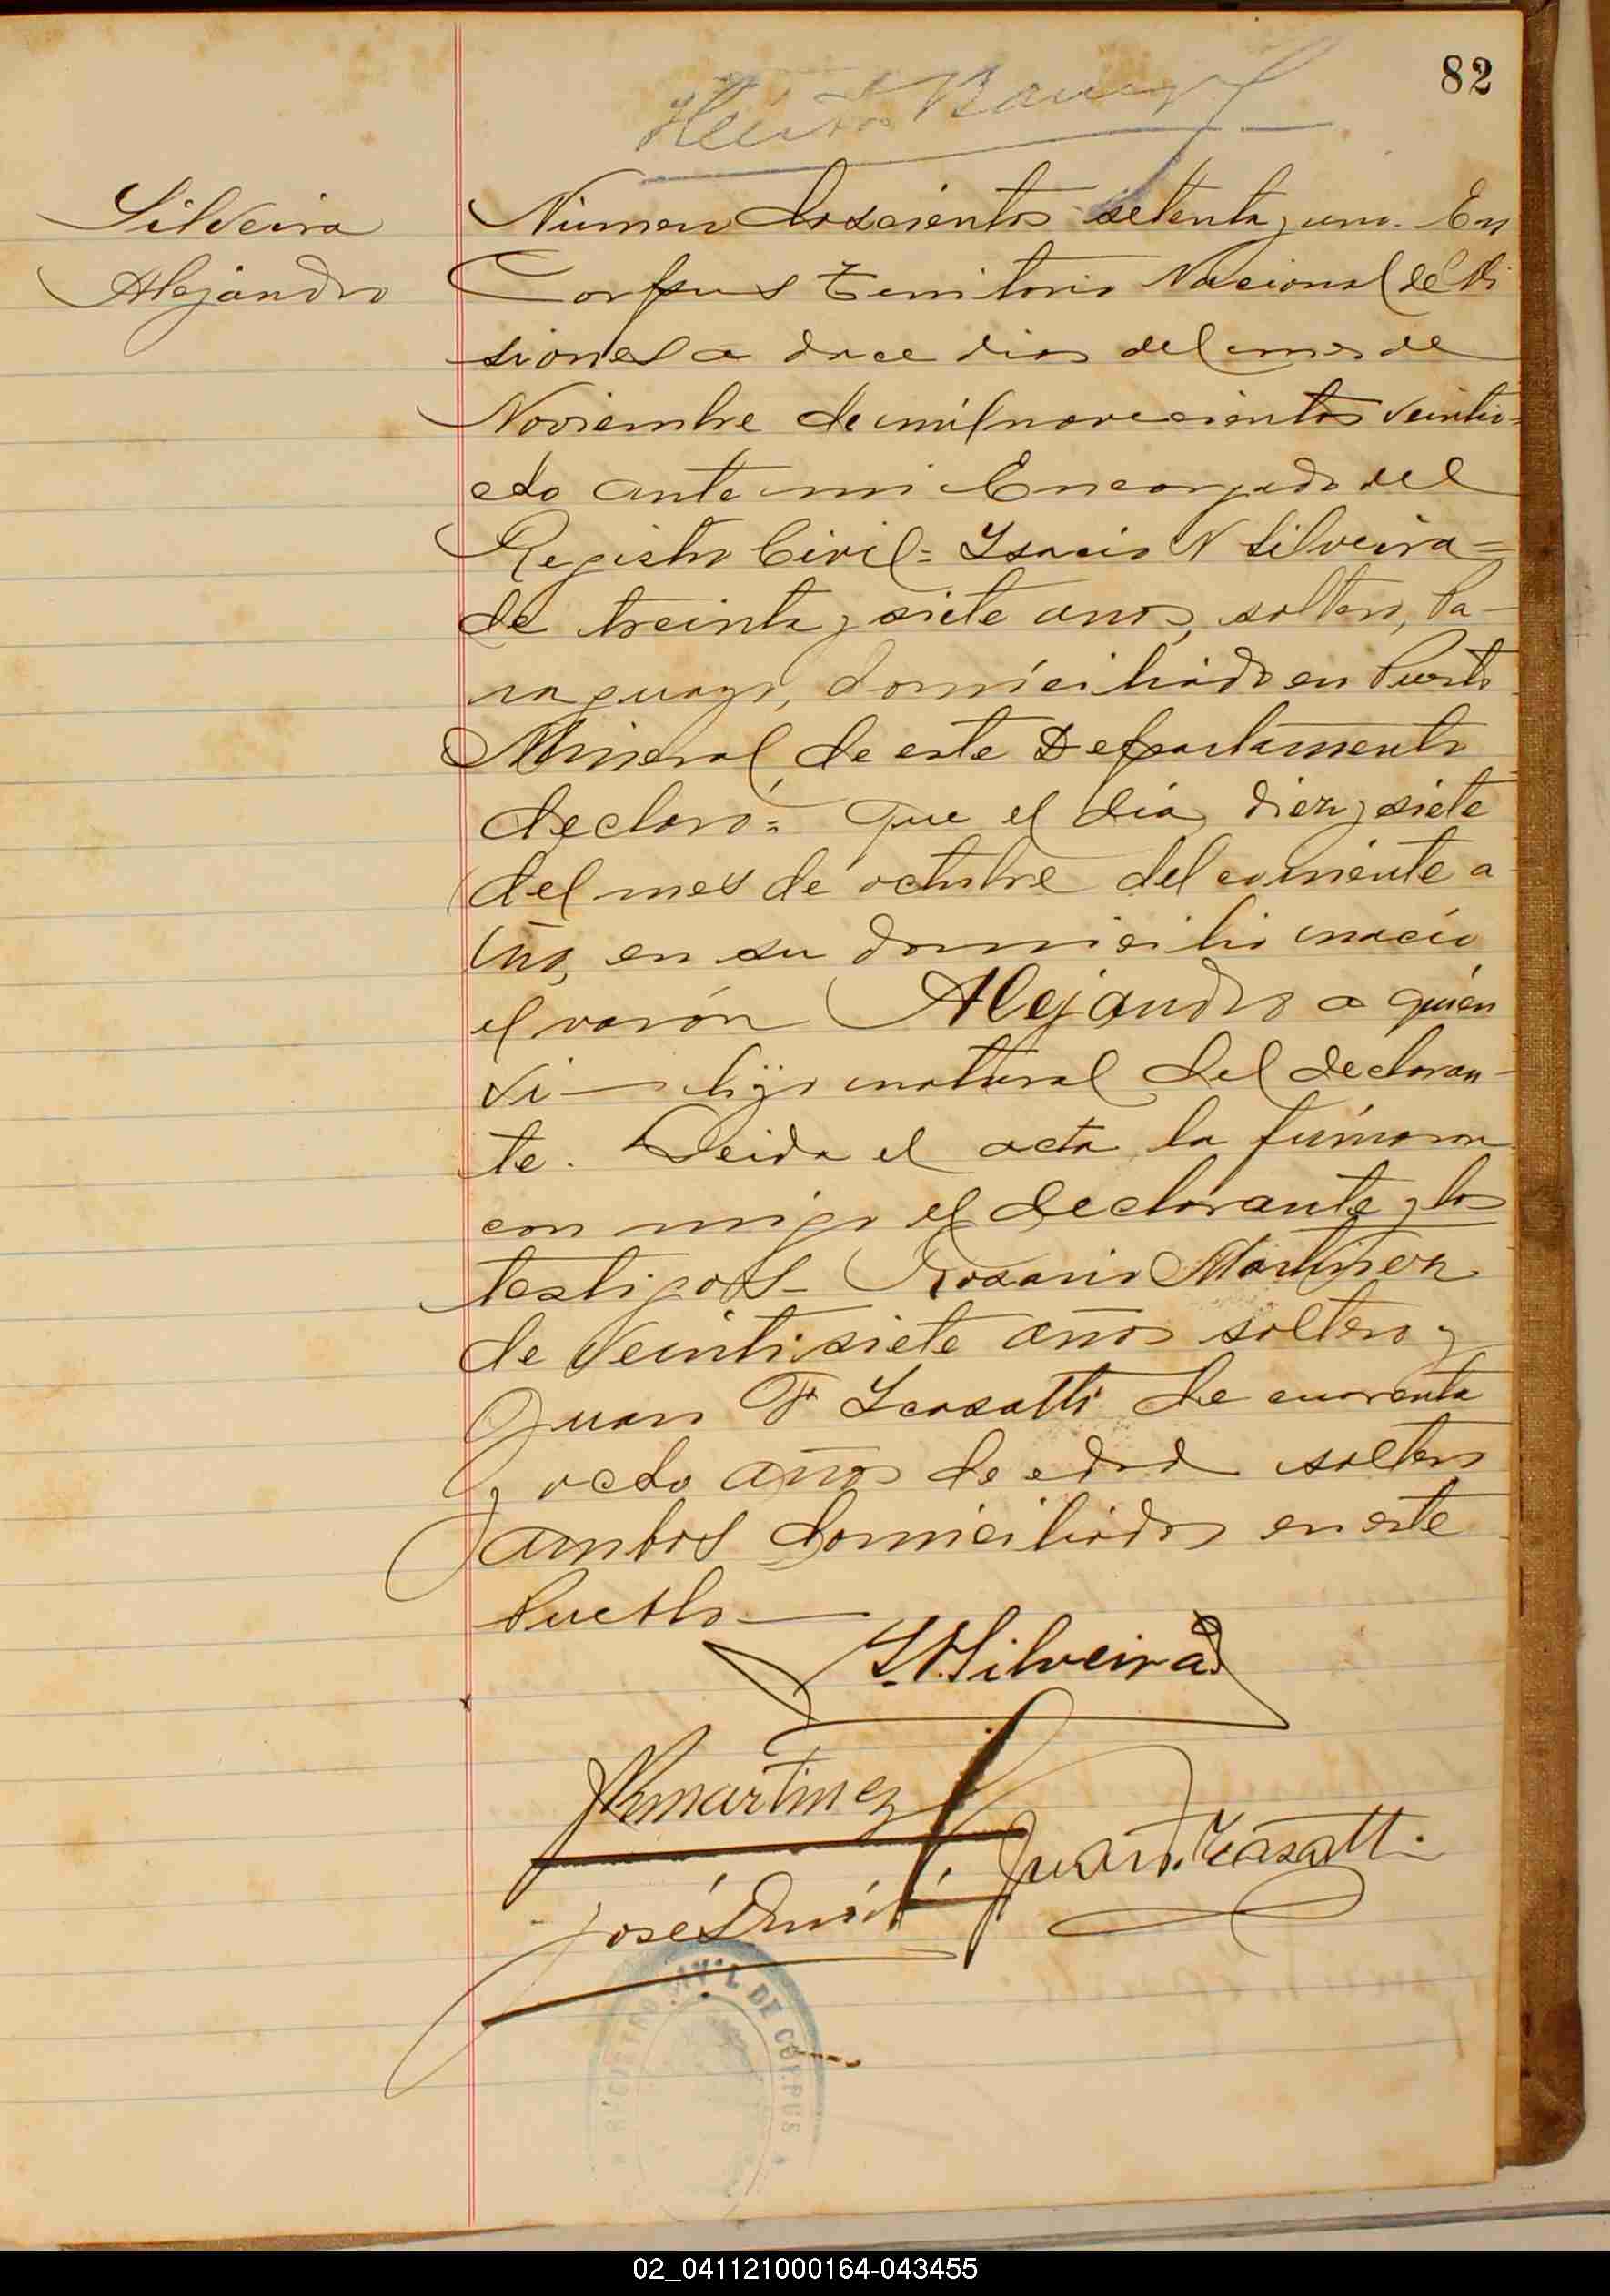 82
Silveira
Alejandro
Número doscientos setenta y uno. En
Corpus Territorio Nacional de Mi
siones a doce dias del mes de
Noviembre de mil novecientos veintio-
cho ante mi Encargado del
Registro Civil = Isacio N Silveira =
de treinta y siete anos, soltero, Pa-
raguayo, domiciliado en Puerto
Mineral, de este Departamento
declaró = Que el día diez y siete
del mes de octubre del corriente a
ño, en su domicilio nació
el varón Alejandro a quién
vi — hijo natural del declaran-
te. Leida el acta la firmaron
con migo el declarante y los
testigos - Rosario Martinez
de veintisiete años soltero y
Juan F Icasatti de cuarenta
y ocho años de edad soltero
ambos domiciliados en este
Pueblo —
I. N. Silveira
JRmartinez
Juan F. Icasatti
José
REGISTRO CIVIL DE CORPUS
02_041121000164-043455